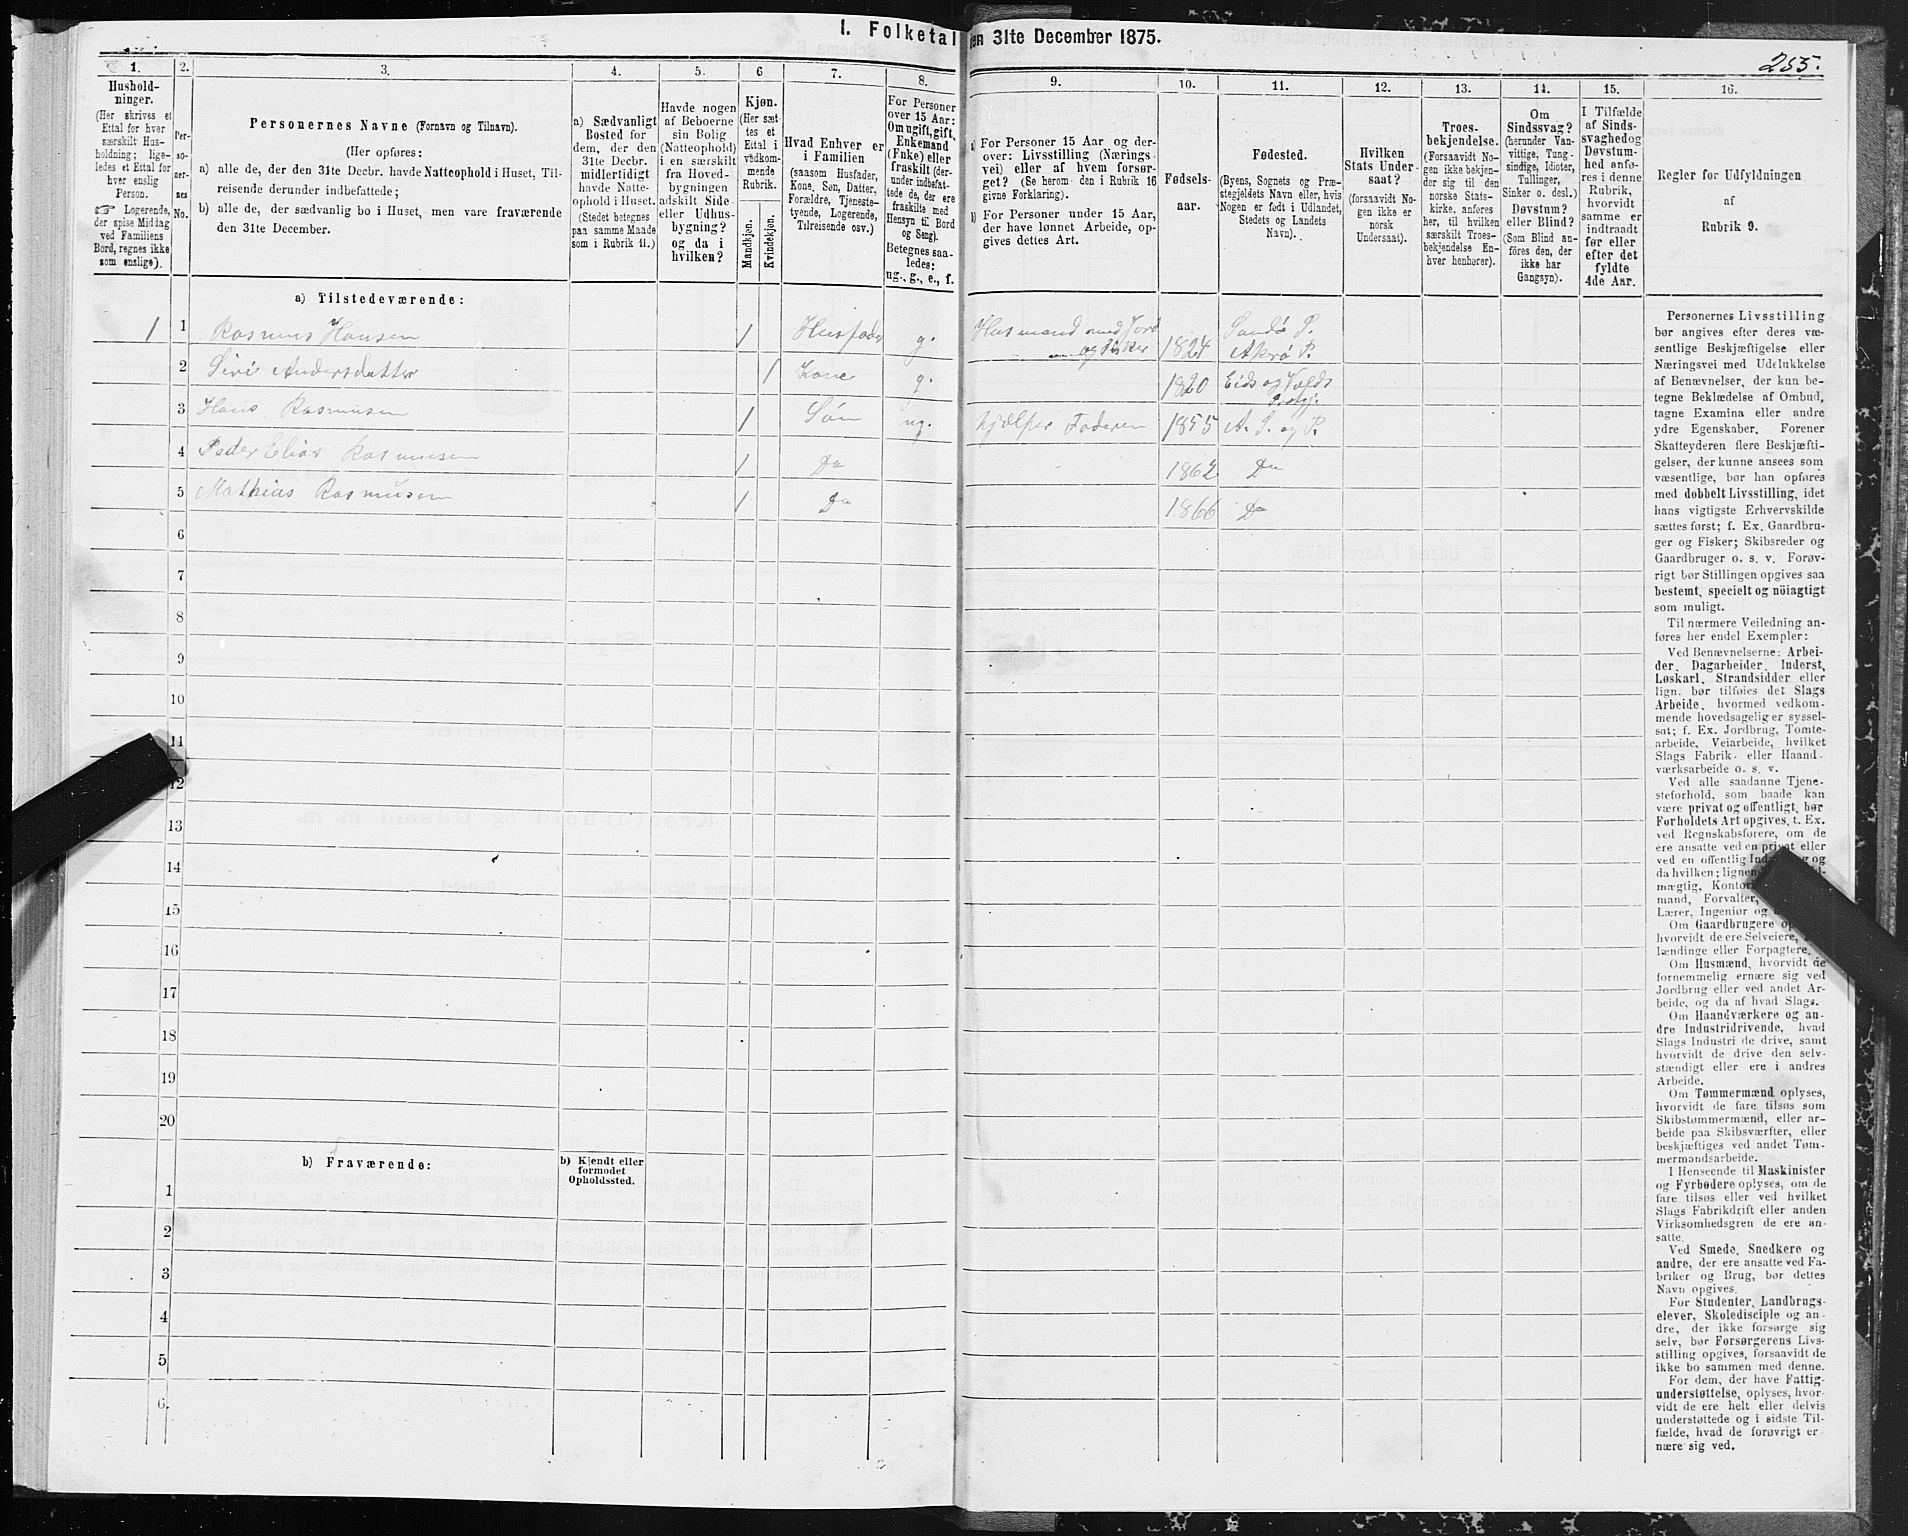 I. Folketal den 31te December 1875.
255.
1.
Hushold-
ninger.
(Her skrives et
Ettal for hver
særskilt Hus-
holdning; lige-
ledes et Ettal for
hver enslig
Person.
☞ Logerende,
der spise Middag
ved Familiens
Bord, regnes ikke
som enslige).
2.
Per-
so-
ner-
nes
No.
3.
Personernes Navne (Fornavn og Tilnavn).
(Her opføres:
a) alle de, der den 31te Decbr. havde Natteophold i Huset, Til-
reisende derunder indbefattede;
b) alle de, der sædvanlig bo i Huset, men vare fraværende
den 31te December.
4.
a) Sædvanligt
Bosted for
dem, der den
31te Decbr.
midlertidigt
havde Natte-
ophold i Huset.
(Stedet betegnes
paa samme Maade
som i Rubrik 11.)
5.
Havde nogen
af Beboerne
sin Bolig
(Natteophold)
i en særskilt
fra Hoved-
bygningen
adskilt Side-
eller Udhus-
bygning?
og da i
hvilken?
6
Kjøn.
(Her sæt-
tes et
Ettal i
vedkom-
mende
Rubrik.
Mandkjøn.
Kvindekjøn.
7.
Hvad Enhver er
i Familien
(saasom Husfader,
Kone, Søn, Datter,
Forældre, Tjeneste-
tyende, Logerende,
Tilreisende osv.)
8.
For Personer
over 15 Aar:
Om ugift, gift,
Enkemand
(Enke) eller
fraskilt (der-
under indbefat-
tede de, der ere
fraskilte med
Hensyn til Bord
og Seng).
Betegnes saa-
ledes:
ug., g., e., f.
9.
a) For Personer 15 Aar og der-
over: Livsstilling (Nærings-
vei) eller af hvem forsør-
get? (Se herom den i Rubrik 16
givne Forklaring).
b) For Personer under 15 Aar,
der have lønnet Arbeide, op-
gives dettes Art.
10.
Fødsels-
aar.
11.
Fødested.
(Byens, Sognets og Præ-
stegjeldets Navn eller, hvis
Nogen er født i Udlandet,
Stedets og Landets
Navn).
12.
Hvilken
Stats Under-
saat?
(forsaavidt No-
gen ikke er
norsk
Undersaat).
13.
Troes-
bekjendelse.
(Forsaavidt No-
gen ikke bekjen-
der sig til den
norske Stats-
kirke, anføres
her, til hvilken
særskilt Troes-
bekjendelse En-
hver henhører).
14.
Om
Sindssvag?
(herunder Van-
vittige, Tung-
sindige, Idioter,
Tullinger,
Sinker o. desl.)
Døvstum?
eller Blind?
(Som Blind an-
føres den, der
ikke har
Gangsyn).
15.
I Tilfælde
af Sinds-
svaghed og
Døvstum-
hed anfø-
res i denne
Rubrik,
hvorvidt
samme er
indtraadt
før eller
efter det
fyldte
4de Aar.
16.
Regler for Udfyldningen
af
Rubrik 9.
a) Tilstedeværende:
1 1 Rasmus Hansen 1 Husfader g. Husmand med Jord og Fisker 1824 Sandø S. Akrø P.
2 Siri Andersdatter 1 Kone g. 1820 Eids og Volds Prstgj.
3 Hans Rasmusen 1 Søn ug. hjælper Faderen 1855 A. S. og P.
4 Peder Elias Rasmusen 1 Do 1862 Do
5 Mathias Rasmusen 1 Do 1866 Do
6
7
8
9
10
11
12
13
14
15
16
17
18
19
20
b) Fraværende:
b) Kjendt eller
formodet
Opholdssted.
1
2
3
4
5
6.
Personernes Livsstilling
bør angives efter deres væ-
sentlige Beskjæftigelse eller
Næringsvei med Udelukkelse
af Benævnelser, der kun be-
tegne Beklædelse af Ombud,
tagne Examina eller andre
ydre Egenskaber. Forener
Skatteyderen flere Beskjæfti-
gelser, der kunne ansees som
væsentlige, bør han opføres
med dobbelt Livsstilling, idet
hans vigtigste Erhvervskilde
sættes først; f. Ex. Gaardbru-
ger og Fisker; Skibsreder og
Gaardbruger o. s. v. Forøv-
rigt bør Stillingen opgives saa
bestemt, specielt og nöiagtigt
som muligt.
Til nærmere Veiledning an-
føres her endel Exempler:
Ved Benævnelserne: Arbei-
der, Dagarbeider, Inderst,
Løskarl, Strandsidder eller
lign. bør tilføies det Slags
Arbeide, hvormed vedkom-
mende hovedsagelig er syssel-
sat; f. Ex. Jordbrug, Tomte-
arbeide, Veiarbeide, hvilket
Slags Fabrik- eller Haand-
værksarbeide o. s. v.
Ved alle saadanne Tjene-
steforhold, som baade kan
være privat og offentligt, bør
Forholdets Art opgives, t. Ex.
ved Regnskabsførere, om de
ere ansatte ved en privat eller
ved en offentlig
da hvilken;
mægtig,
mand, Forvalter,
Lærer, Ingeniør og
Om Gaardbrugere
hvorvidt de ere Selveiere,
lændinge eller Forpagtere.
Om Husmænd, hvorvidt de
fornemmelig ernære sig ved
Jordbrug eller ved andet Ar-
beide, og da af hvad Slags.
Om Haandværkere og an-
dre Industridrivende, hvad
Slags Industri de drive, samt
hvorvidt de drive den selv-
stændigt eller ere i andres
Arbeide.
Om Tømmermænd oplyses,
hvorvidt de fare tilsøs som
Skibstømmermænd, eller ar-
beide paa Skibsværfter, eller
beskjæftiges ved andet Tøm-
mermandsarbeide.
I Henseende til Maskinister
og Fyrbødere oplyses, om de
fare tilsøs eller ved hvilket
Slags Fabrikdrift eller anden
Virksomhedsgren de ere an-
satte.
Ved Smede, Snedkere og
andre, der ere ansatte ved Fa-
briker og Brug, bør dettes
Navn opgives.
For Studenter, Landbrugs-
elever, Skoledisciple og an-
dre, der ikke forsørge sig
selv, bør Forsørgerens Livs-
stilling opgives, forsaavidt de
ikke bo sammen med denne.
For dem, der have Fattig-
understøttelse, oplyses, hvor-
vidt de ere helt eller delvis
understøttede og i sidste Til-
fælde, hvad de forøvrigt er-
nære sig ved.